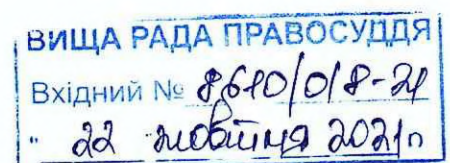 ВИЩА РАДА ПРАВОСУДДЯ
Вхідний № 8610/0/8-21
" 22 жовтня 2021р